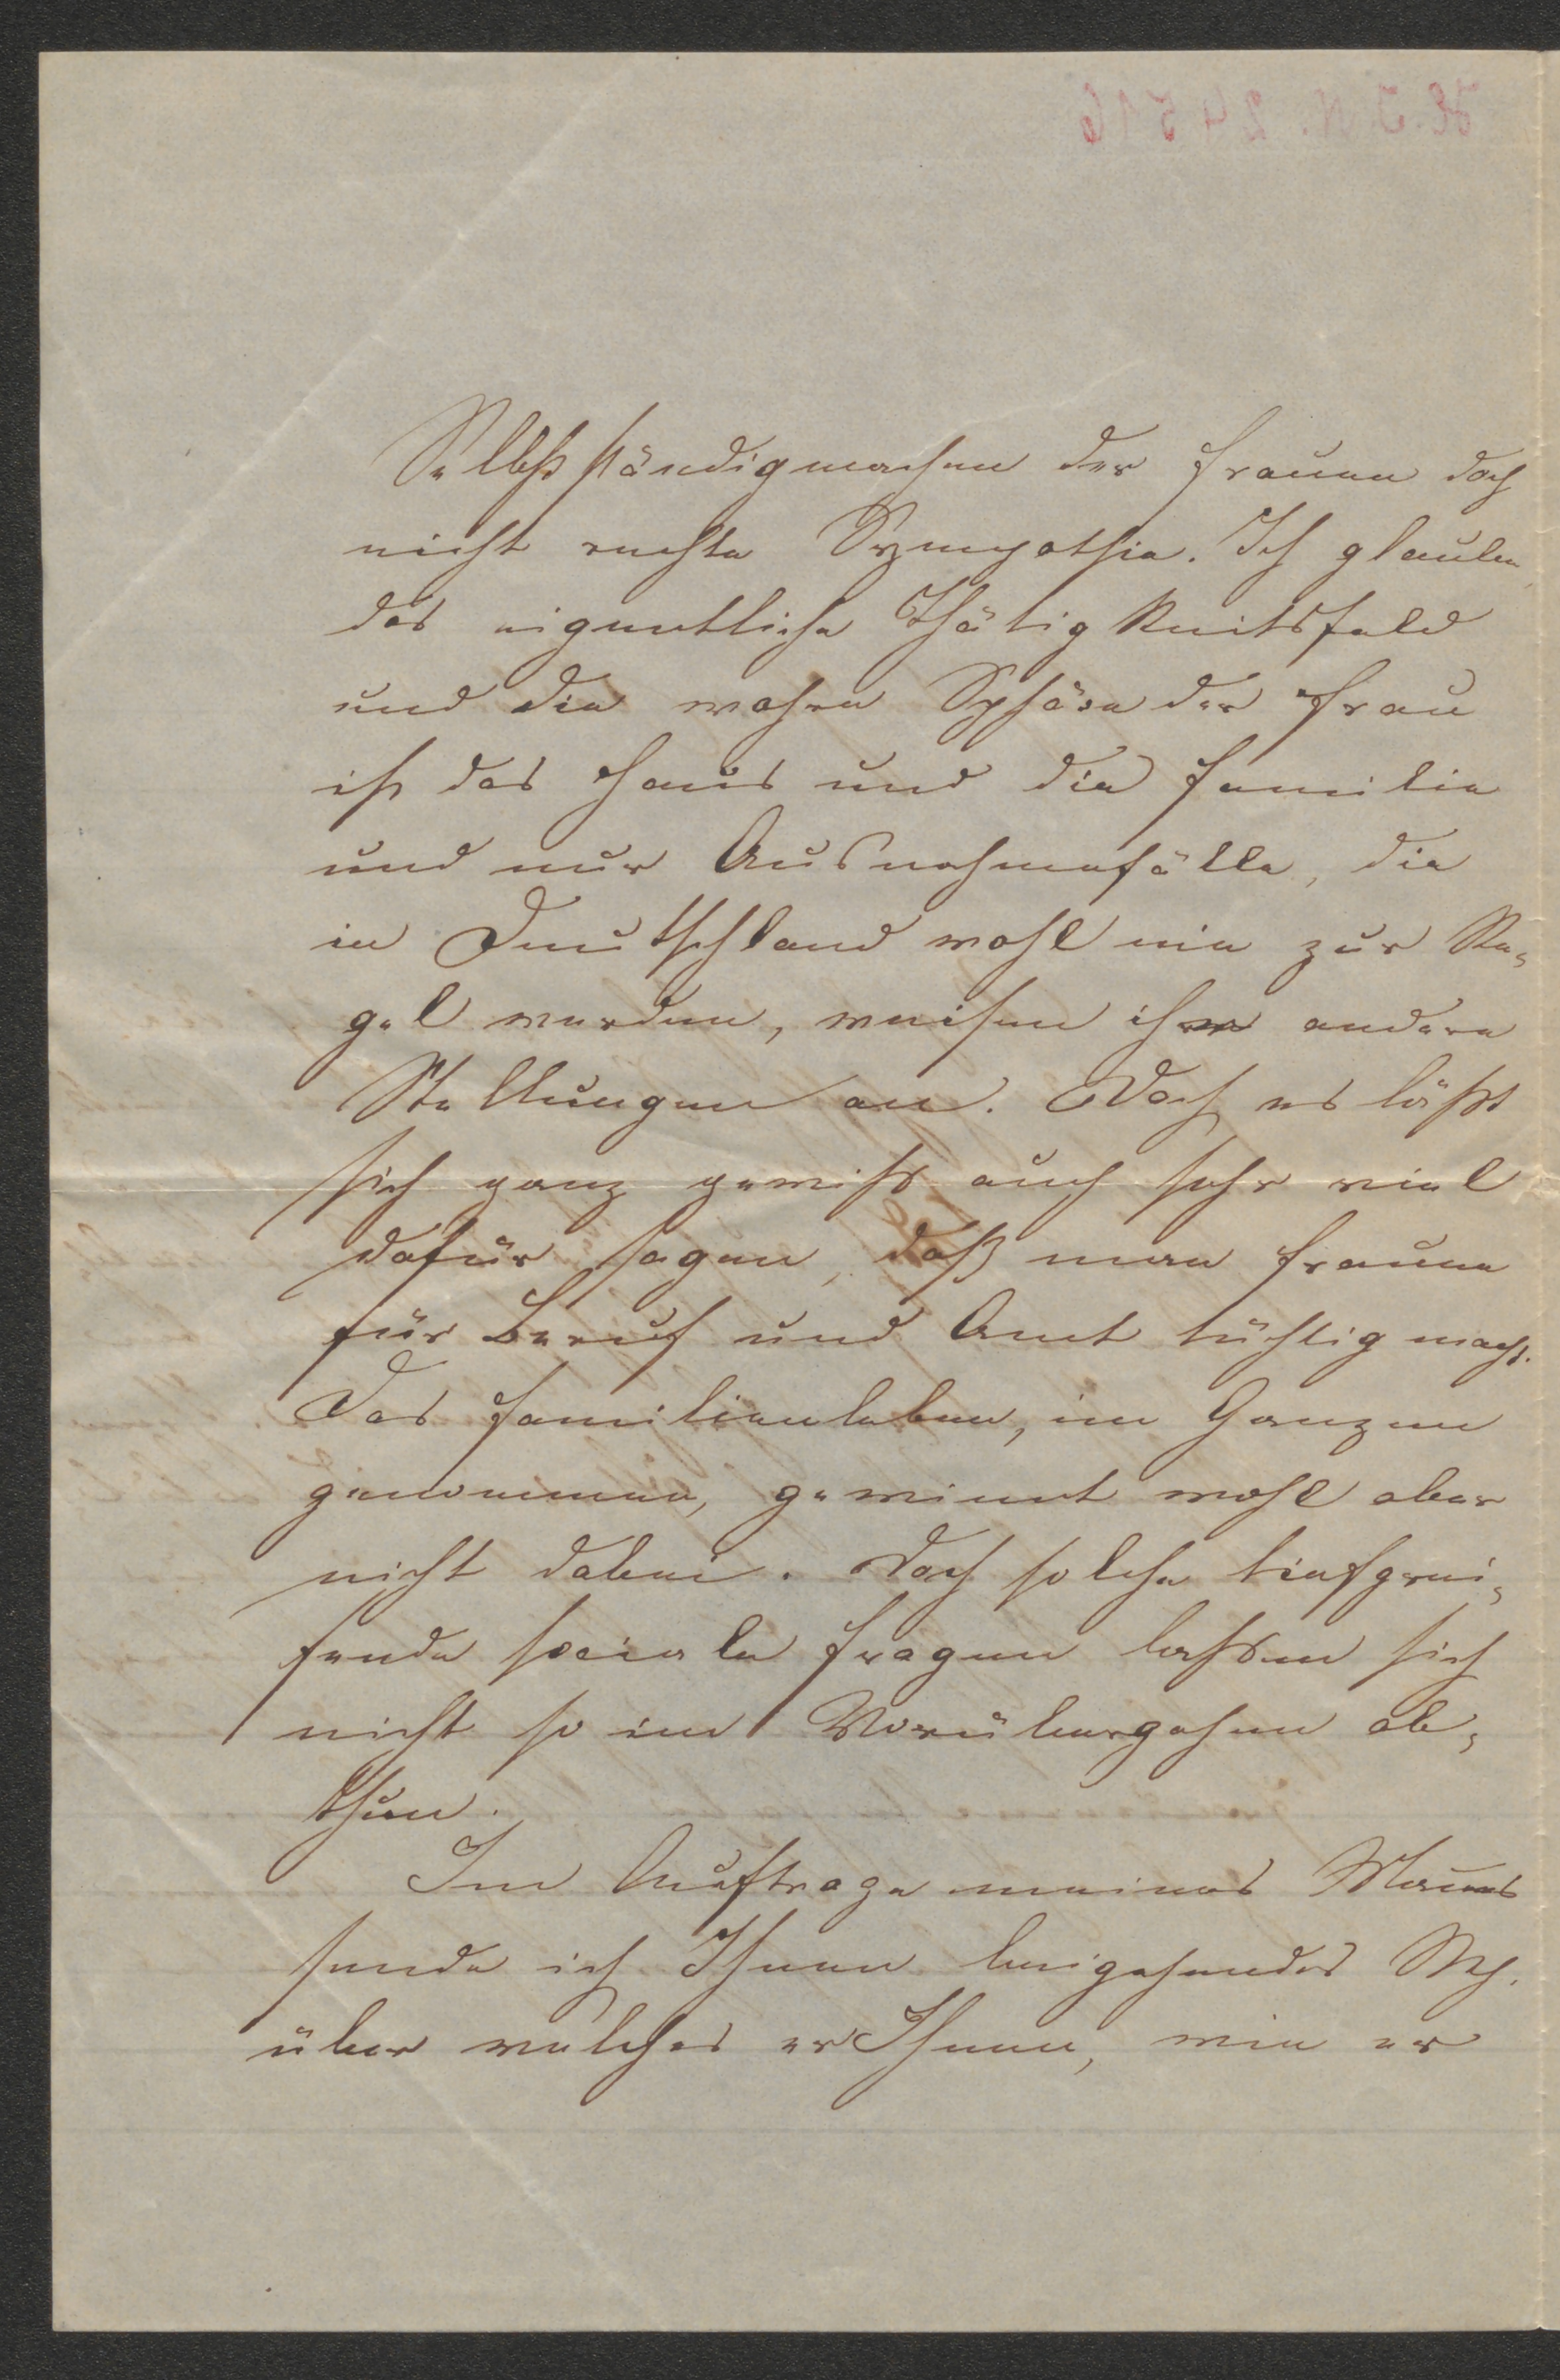 Selbstständigmachen der Frauen doch
nicht rechte Sympathie. Ich glaube,
das eigentliche Thätigkeitsfeld
und die wahre Sphäre der Frau
ist das Haus und die Familie
und nur Ausnahmefälle, die
in Deutschland wohl nie zur Re-
gel werden, weisen ihr andere
Stellungen an. Doch es läßt
sich ganz gewiß auch sehr viel
dafür sagen, daß man Frauen
für Beruf und Amt tüchtig macht.
Das Familienleben, im Ganzen
genommen, gewinnt wohl aber
nicht dabei. Doch solche tiefgrei-
fende sociale Fragen lassen sich
nicht so im Vorübergehen ab-
thun.
Im Auftrage meines Mannes
sende ich Ihnen beigehendes Msc.
über welches er Ihnen, wie er